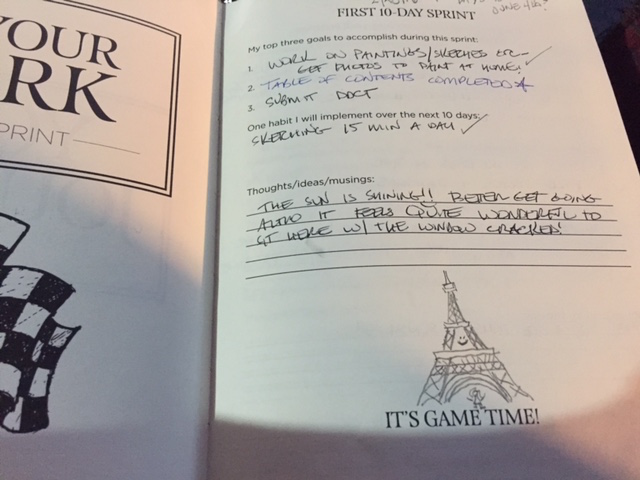 YOUR
RK
PRINT
JUNE
FIRST 10-DAY SPRINT
My top three goals to accomplish during this sprint:
1. WORK ON PAINTINGS/SKETCHES ETC-
GET PHOTOS TO PAINT AT HOME!
2. TABLE OF CONTENTS COMPLETED
3. SUBMIT DOCT
One habit I will implement over the next 10 days:
SKETCHING 15 MIN A DAY
Thoughts/ideas/musings:
THE SUN IS SHINING!! BETTER GET GOING
ALTHO IT FEELS QUITE WONDERFUL TO
SIT HERE W/ THE WINDOW CRACKED!
IT'S GAME TIME!